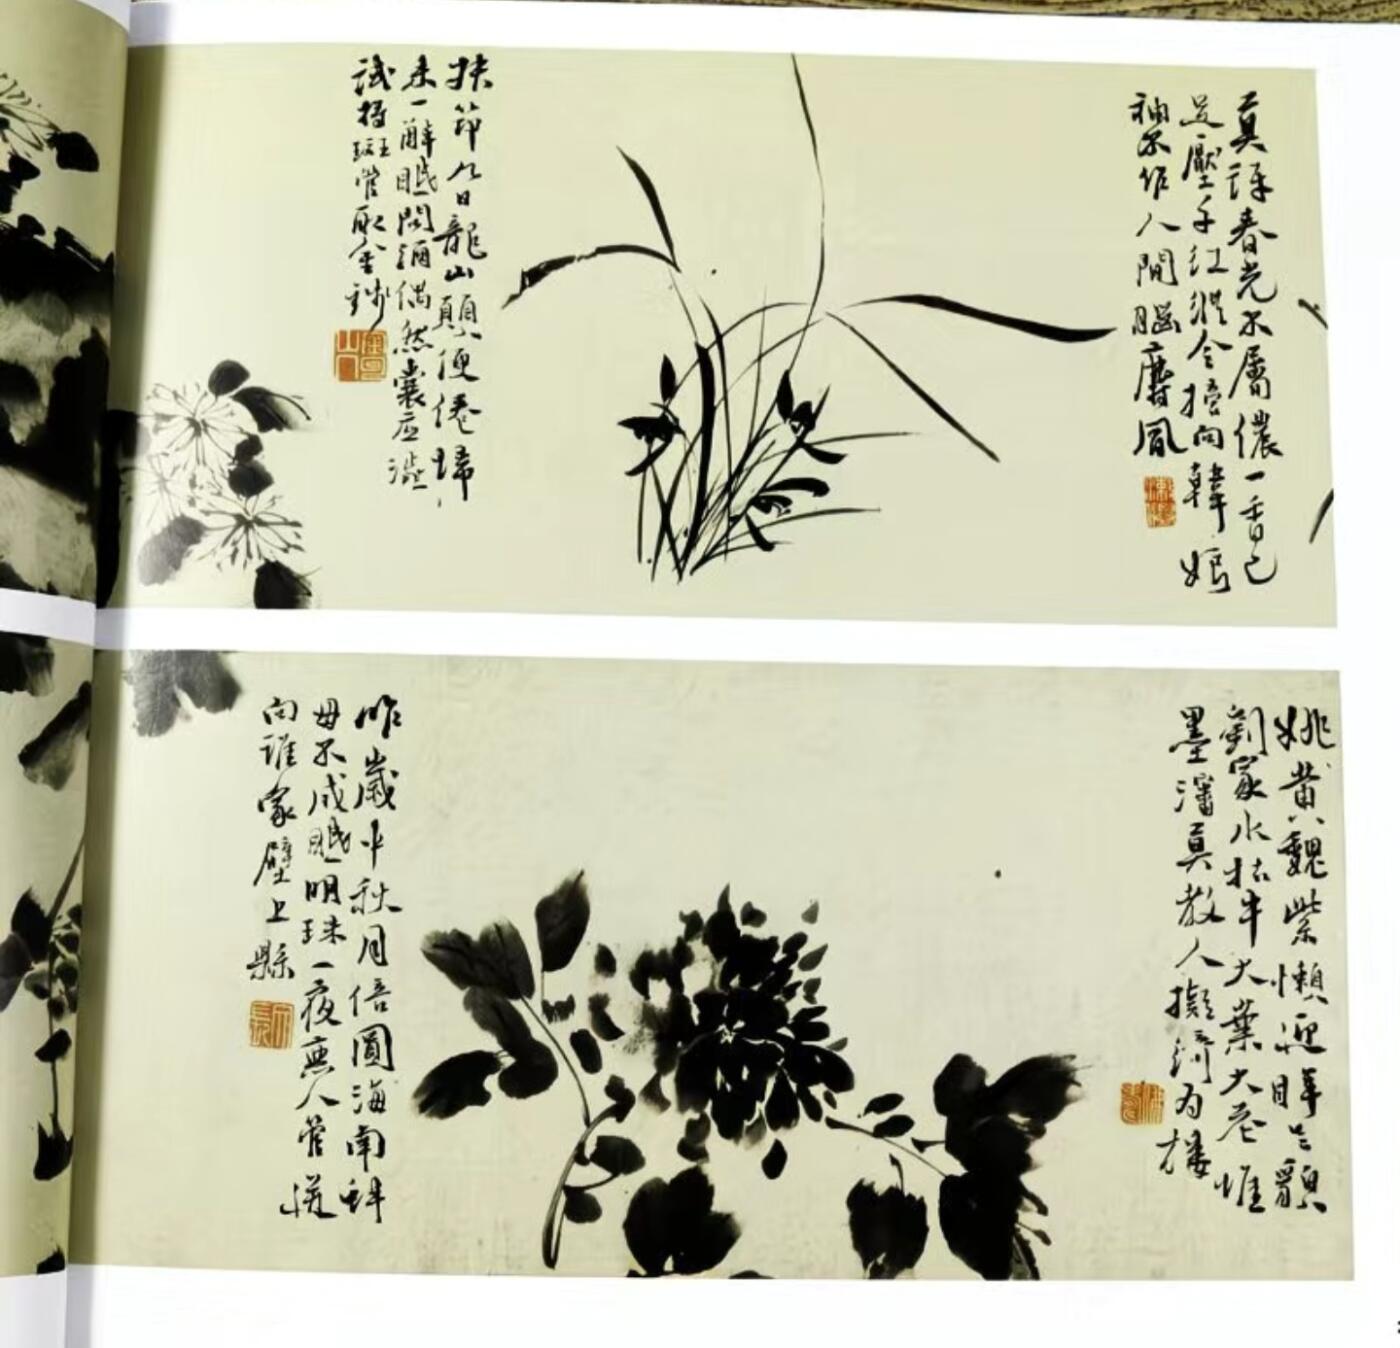 莫訝春光不屬儂一香已
足壓千紅縱令摘向韓娘
袖不作人間腦麝風
扶筇九日龍山顛便倦歸
來一醉眠問酒偶然囊底澀
試將斑管取金錢
姚黃魏紫懶迎眸只貌
劉家水牯牛大葉大花惟
墨瀋真教人擬綺為樓
昨歲中秋月倍圓海南蚌
母不成眠明珠一夜無人管迸
向誰家壁上懸